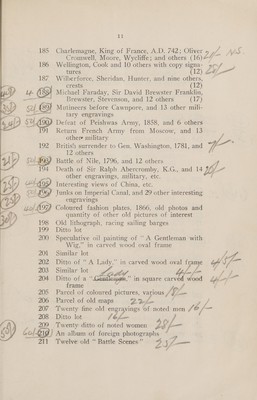 11
185 Charlemagne, King of France, A.D. 742; Oliver
Cromwell, Moore, Wycliffe; and others (16) 2/- N.S.
186 Wellington, Cook and 10 others with copy signa-
tures (12)
187 Wilberforce, Sheridan, Hunter, and nine others,
crests (12)
188 Michael Faraday, Sir David Brewster Franklin,
Brewster, Stevenson, and 12 others (17)
189 Mutineers before Cawnpore, and 13 other mili-
tary engravings
190 Defeat of Peishwas Army, 1858, and 6 others
191 Return French Army from Moscow, and 13
other military
192 British surrender to Gen. Washington, 1781, and
12 others
193 Battle of Nile, 1796, and 12 others
194 Death of Sir Ralph Abercromby, K.G., and 14
other engravings, military, etc.
195 Interesting views of China, etc.
196 Junks on Imperial Canal, and 29 other interesting
engravings
197 Coloured fashion plates, 1866, old photos and
quantity of other old pictures of interest
198 Old lithograph, racing sailing barges
199 Ditto lot
200 Speculative oil painting of "A Gentleman with
Wig," in carved wood oval frame
201 Similar lot
202 Ditto of "A Lady," in carved wood oval frame 45/-
203 Similar lot
Lady
204 Ditto of a "Gentleman" in square carved wood
frame
205 Parcel of coloured pictures, various 18/-
206 Parcel of old maps 22/-
207 Twenty fine old engravings of noted men 16/-
208 Ditto lot 16/-
209 Twenty ditto of noted women 28/-
210 An album of foreign photographs
211 Twelve old "Battle Scenes" 25/-